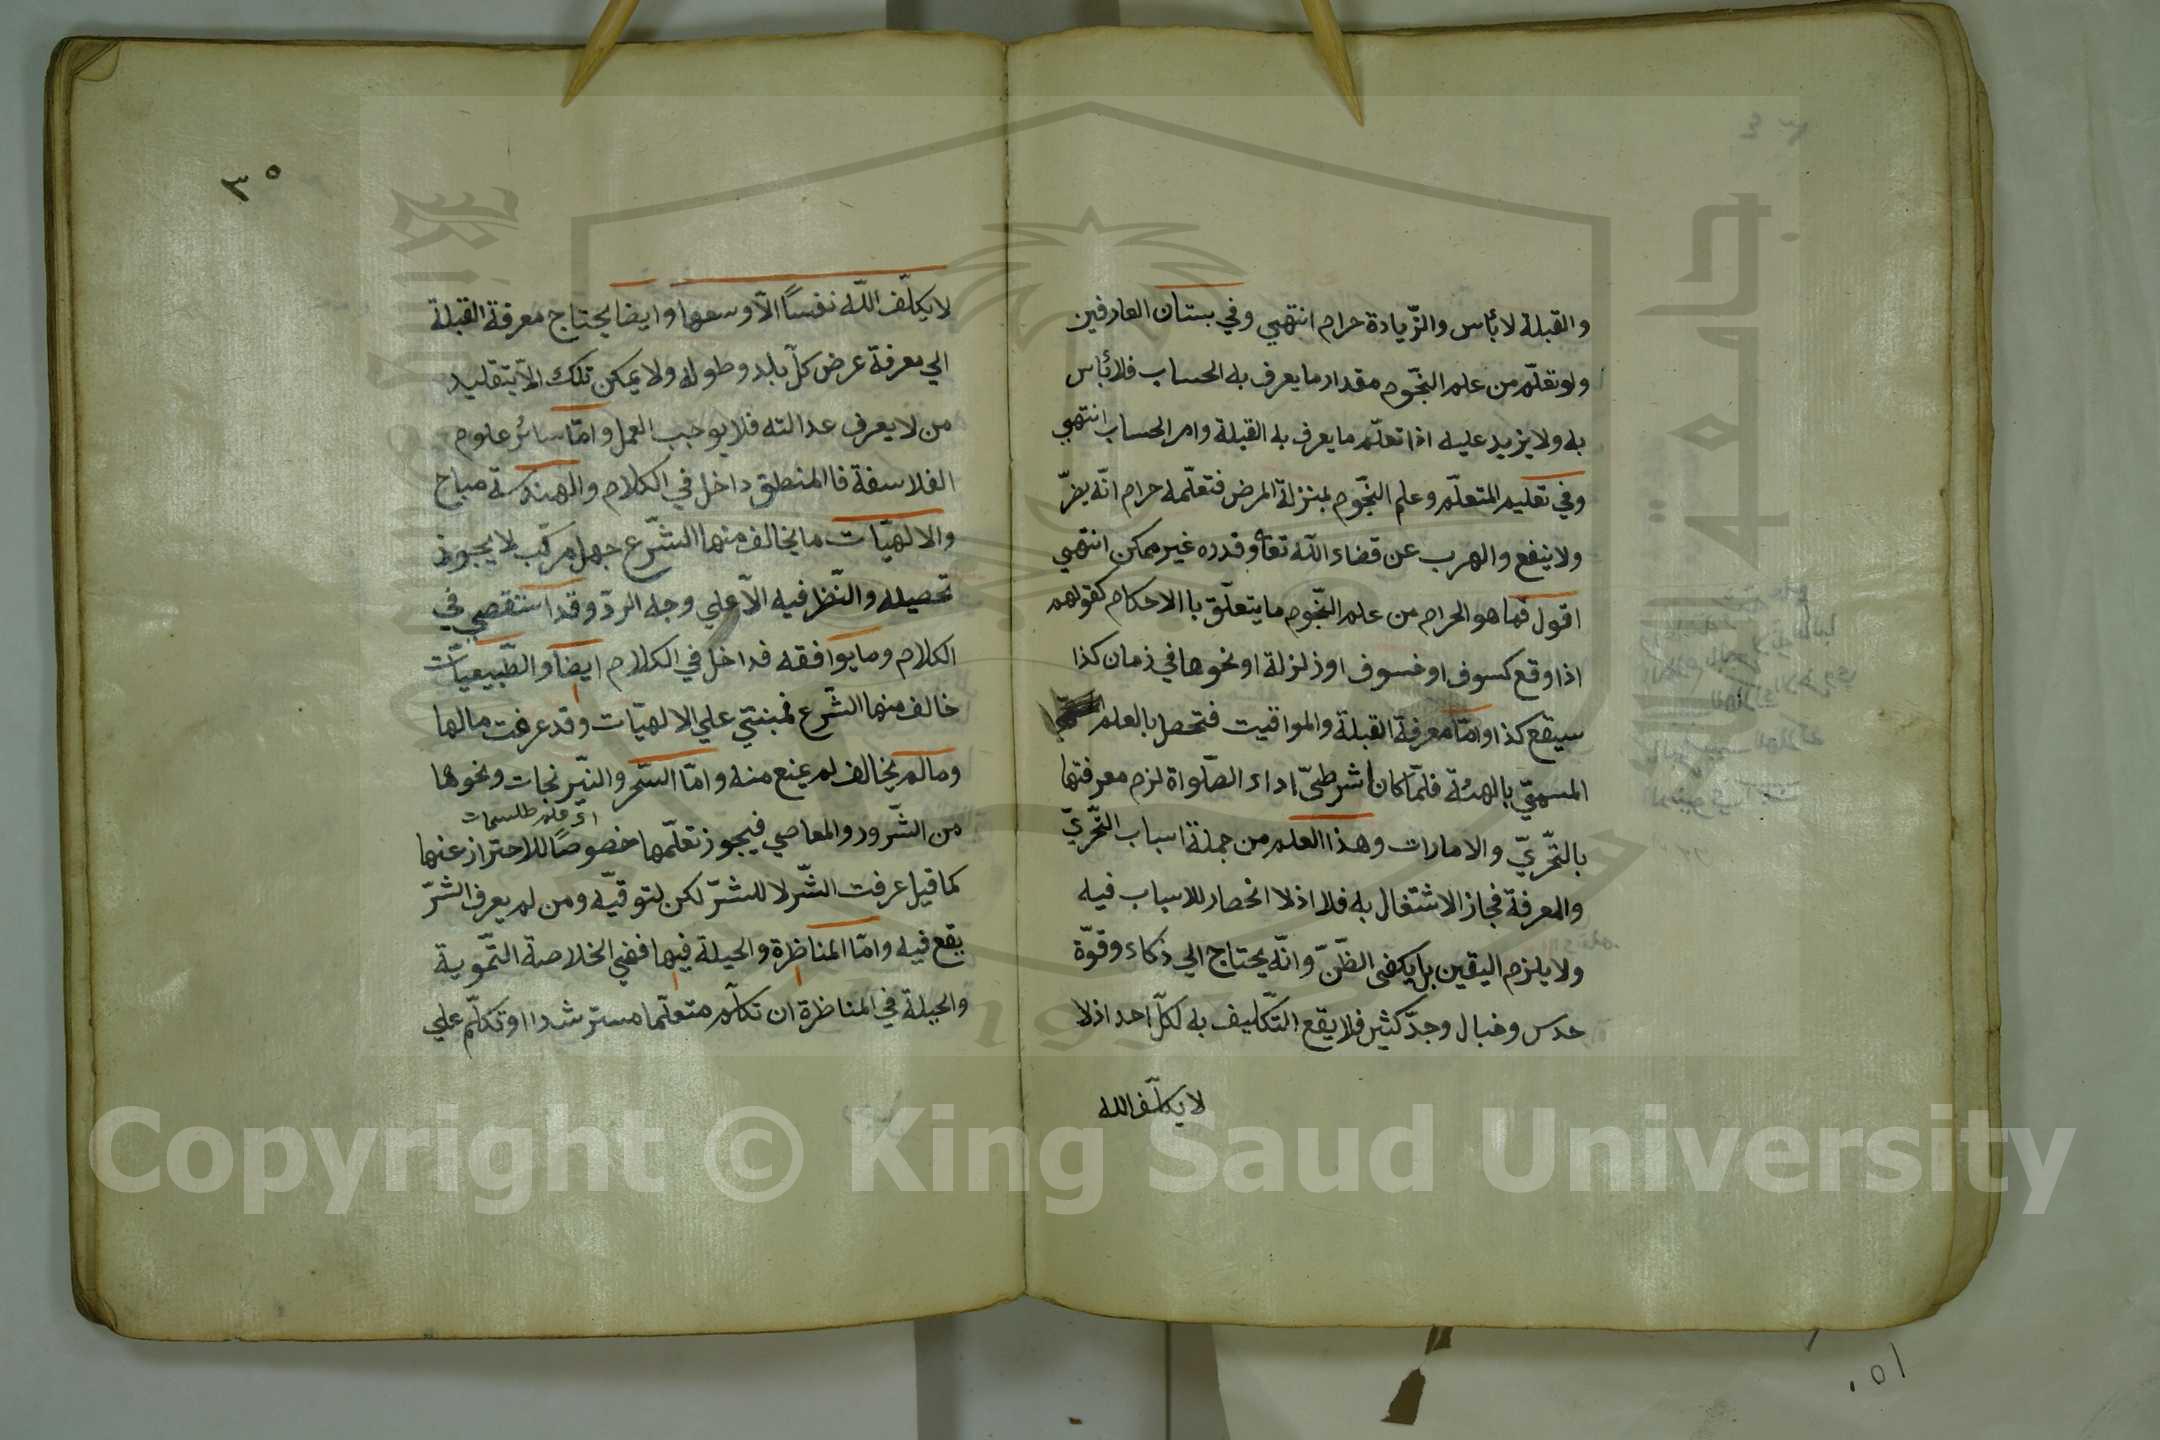 والقبلة لا بأس والزّيادة حرام انتهي وفي بستان العارفين
ولو تعلّم من علم النجّوم مقدار ما يعرف به الحساب فلا بأس
به ولا يزيد عليه اذا تعلّم ما يعرف به القبلة وامر الحساب انتهي
وفي تعليم المتعلّم وعلم النجّوم بمنزلة المرض فتعلّمه حرام انّه يضرّ
ولا ينفع والهرب عن قضاء اللّه تعا وقدره غير ممكن انتهي
اقول فما هو الحرام من علم النّجوم ما يتعلّق با الاحكام كقولهم
اذا وقع كسوف او خسوف او زلزلة او نحوها في زمان كذا
سيقع كذا وامّا معرفة القبلة والمواقيت فتحصل بالعلم
المسمّي بالهيئة فلمّا كان شرطيّ اداء الصّلواة لزم معرفتها
بالتّحرّيّ والامارات وهذا العلم من جملة اسباب التّحرّيّ
والمعرفة فجاز الاشتغال به فلا اذلا انحصار للاسباب فيه
ولا يلزم اليقين بل يكفي الظّنّ وانّه يحتاج الي ذكاء وقوّة
حدس وخيال وجدّ كثير فلا يقع التّكليف به لكلّ احد اذلا
لا يكلّف الله
٣٥
لا يكلّف اللّه نفسًا الّا وسعها وايضا يحتاج معرفة القبلة
الي معرفة عرض كلّ بلد وطوله ولا يمكن تلك الّا بتقليد
من لا يعرف عدالته فلا يوجب العمل وامّا سائر علوم
الفلاسفة فا المنطق داخل في الكلام والهندسة مباح
والالهيّات ما يخالف منها الشّرع جهل مركّب لا يجوز
تحصيله والنّظر فيه الّا علي وجه الردّ وقد استقصي في
الكلام وما يوافقه فداخل في الكلام ايضا والطّبيعيّات
خالف منها الشّرع فمبنتي علي الالهيّات وقد عرفت مالها
وما لم يخالف لم يمنع منه وامّا السّحر والنّيرنجات ونحوها
من الشّرور والمعاصي فيجوز تعلّمها خصوصًا للاحتراز عنها
كما قيل عرفت الشّر لا للشرّ لكن لتوقيّه ومن لم يعرف الشرّ
يقع فيه وامّا المناظرة والحيلة فيها ففي الخلاصة التّموية
والحيلة في المناظرة ان تكلّم متعلّما مسترشدا او تكلّم علي